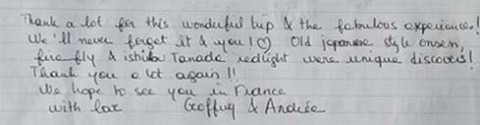 Thank a lot for this wonderful trip & the fabulous experience!
We'll never forget it & you! ♡ Old japanese style onsen,
fire fly & Tanada redlight were unique discovers!
Thank you a lot again!!
We hope to see you in France
with